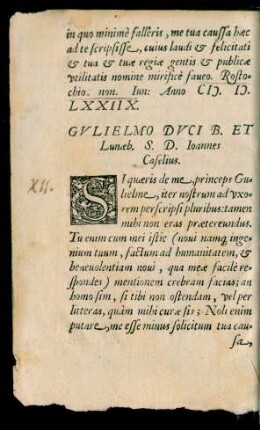 in quo minimè falleris, me tua caussa hæc
ad te scripsisse, cuius laudi & felicitati
& tua & tuæ regiæ gentis & publicæ
vtilitatis nomine mirificè faueo. Rosto-
chio. non. Iun: Anno CIↃ. IↃ.
LXXIIX.
GVLIELMO DVCI B. ET
Lunæb. S. D. Ioannes
Caselius.
XII.
SI quæris de me, princeps Gu-
lielme, iter nostrum ad vxo-
rem perscripsi pluribus: tamen
mihi non eras prætereundus.
Tu enim cum mei istic (noui namq; inge-
nium tuum, factum ad humanitatem, &
beneuolentiam noui, qua meæ facilè re-
spondes) mentionem crebram facias; an
homo sim, si tibi non ostendam, vel per
litteras, quàm mihi curæ sis; Noli enim
putare, me esse minus solicitum tua cau-
sa,